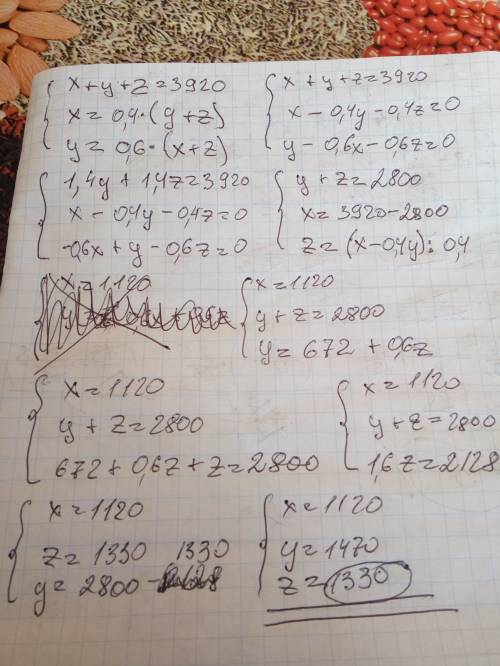 x+y+z=3920
x=0,4·(y+z)
y=0,6·(x+z)
x+y+z=3920
x-0,4y-0,4z=0
y-0,6x-0,6z=0
1,4y+1,4z=3920
x-0,4y-0,4z=0
-0,6x+y-0,6z=0
y+z=2800
x=3920-2800
z=(x-0,4y):0,4
x=1120
y+z=2800
y=672+0,6z
x=1120
y+z=2800
672+0,6z+z=2800
x=1120
y+z=2800
1,6z=2128
x=1120
z=1330 1330
y=2800-
x=1120
y=1470
z=1330